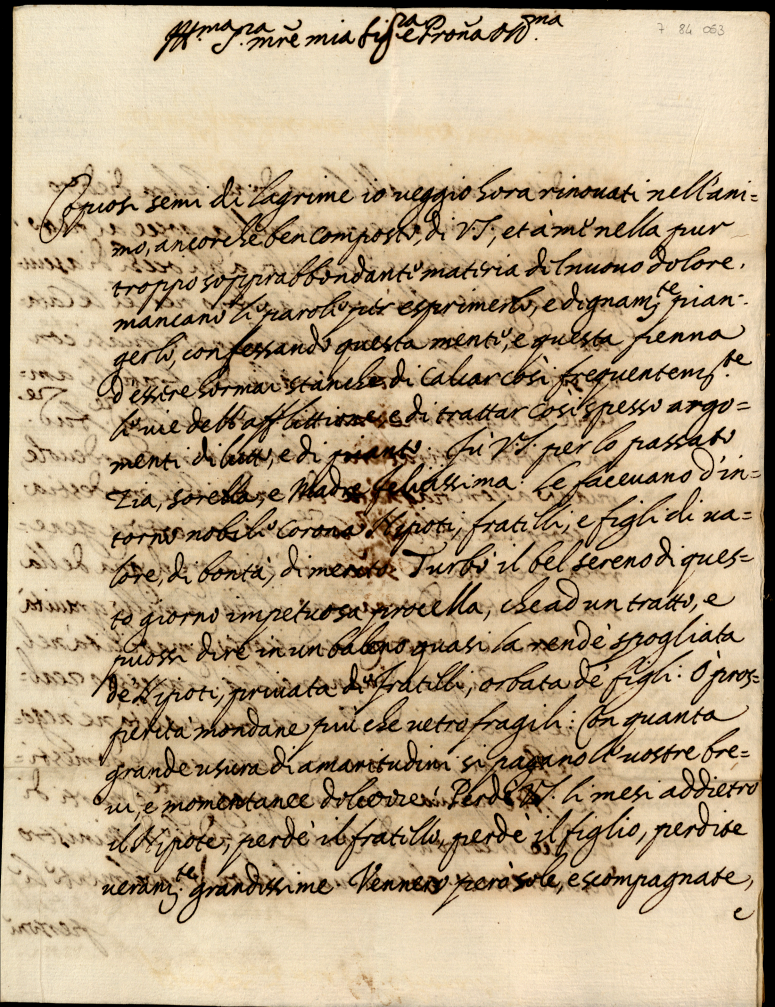 7 84 063
Ill.ma Sig.ra mia Sig.ra e Pron̄a Oss.ma
Copiosi semi di lagrime io veggio hora rinouati nell'ani=
mo, ancorche ben composto, di V.S., et à me nella pur
troppo soprabbondante materia del nuouo dolore.
mancano le parole per esprimerlo, e degnam.te pian=
gerlo, confessando questa mente, e questa penna
d'essere hormai stanche di calcar così frequentem.te
le uie dell'afflittione, e di trattar così spesso argo=
menti di lutto, e di pianto. Fù V.S. per lo passato
Zia, sorella, e Madre felicissima. Le faceuano d'in=
torno nobile corona Nipoti, fratelli, e figli di ua=
lore, di bontà, di merito. Turbò il bel sereno di ques=
to giorno impetuosa procella, che ad un tratto, e
puossi dire in un baleno quasi la rende spogliata
de Nipoti, priuata de' fratelli, orbata de' figli. O pros=
perità mondane piu che uetro fragili: Con quanta
grande usura di amaritudini si pagano le uostre bre=
ui, e momentanee dolcezze! Perdè V.S. li mesi addietro
il Nipote, perdè il fratello, perdè il figlio, perdite
ueram.te grandissime. Vennero però sole, e scompagnate,
e